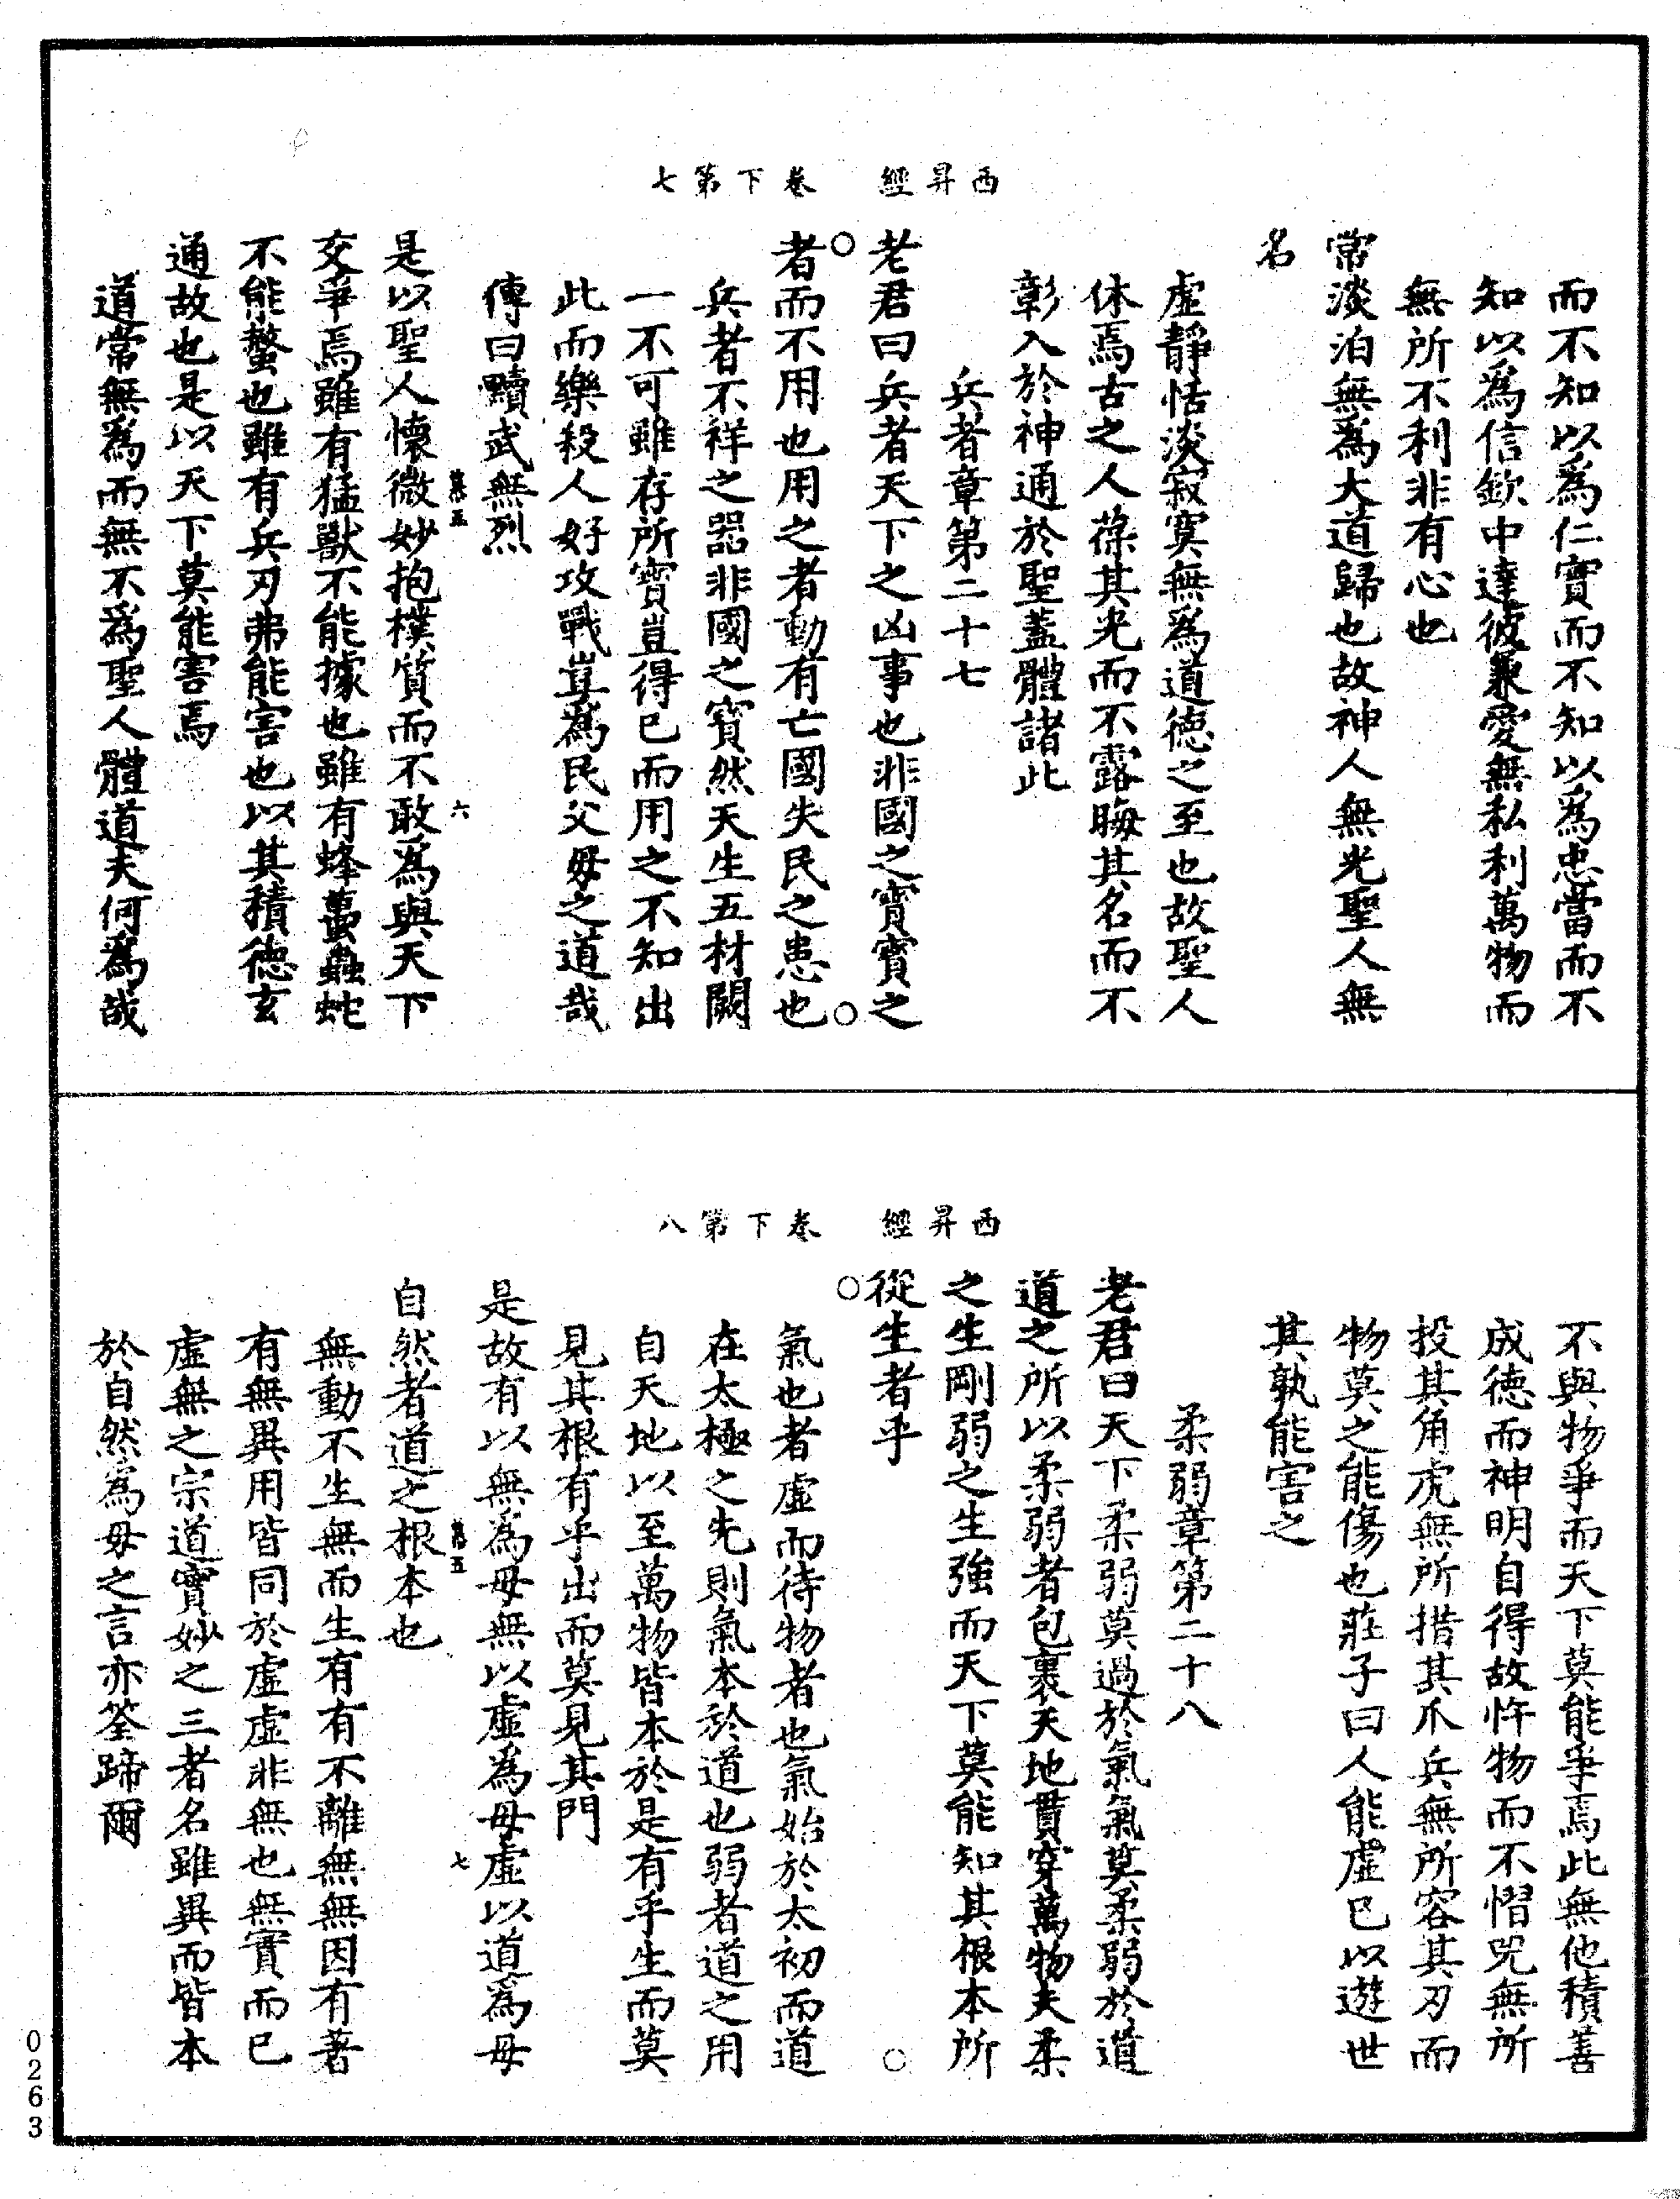 西昇經　卷下第七
而不知以為仁實而不知以為忠當而不
知以為信欽中達彼兼愛無私利萬物而
無所不利非有心也
常淡泊無為大道歸也故神人無光聖人無
名
虛靜恬淡寂寞無為道德之至也故聖人
休焉古之人葆其光而不露晦其名而不
彰入於神通於聖蓋體諸此
兵者章第二十七
老君曰兵者天下之凶事也非國之寶寶之
○　○
者而不用也用之者動有亡國失民之患也
兵者不祥之器非國之寶然天生五材闕
一不可雖存所寶豈得已而用之不知出
此而樂殺人好攻戰豈為民父母之道哉
傳曰黷武無烈
六
是以聖人懷微妙抱樸質而不敢為與天下
交爭焉雖有猛獸不能據也雖有蜂蠆蟲蛇
不能螫也雖有兵刃弗能害也以其積德玄
通故也是以天下莫能害焉
道常無為而無不為聖人體道夫何為哉
西昇經　卷下第八
不與物爭而天下莫能爭焉此無他積善
成德而神明自得故忤物而不慴兕無所
投其角虎無所措其爪兵無所容其刃而
物莫之能傷也莊子曰人能虛己以遊世
其孰能害之
柔弱章第二十八
老君曰天下柔弱莫過於氣氣莫柔弱於道
道之所以柔弱者包裹天地貫穿萬物夫柔
之生剛弱之生強而天下莫能知其根本所
從生者乎
○　○
氣也者虛而待物者也氣始於太初而道
在太極之先則氣本於道也弱者道之用
自天地以至萬物皆本於是有乎生而莫
見其根有乎出而莫見其門
是故有以無為母無以虛為母虛以道為母
七
自然者道之根本也
無動不生無而生有有不離無無因有著
有無異用皆同於虛虛非無也無實而已
虛無之宗道實妙之三者名雖異而皆本
於自然為母之言亦筌蹄爾
0263